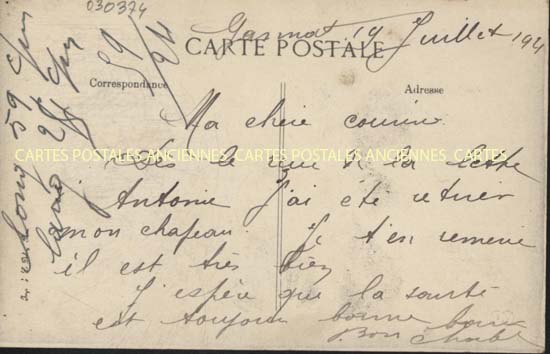 030374
Gasmat 14 Juillet 194
CARTE POSTALE
Correspondance
Adresse
59
24
Ma chère cousine
CARTES POSTALES ANCIENNES CARTES POSTALES ANCIENNES CARTES
Dès le reçu de la lettre
Antonie j'ai été retirer
mon chapeau. Je t'en remercie
il est très bien
J'espère que la santé
est toujours bonne
Bon
long 59 cm
large 24 cm